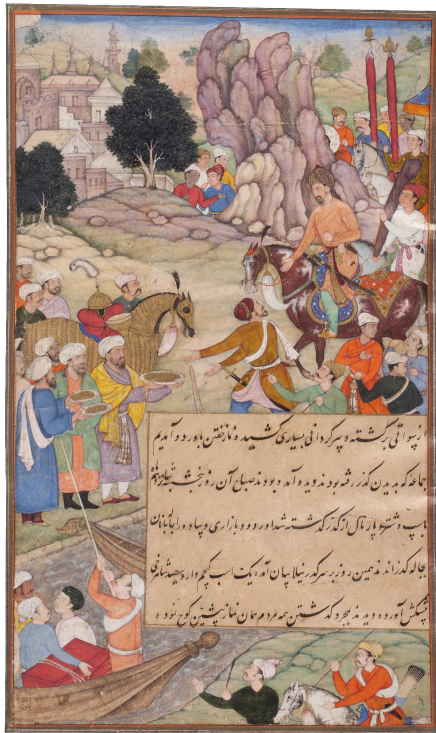 از سواتی برگشته و سرگردانی بسیاری کشیده ناخفتن باردو آمدیم
جماعه که بدیدن گذر رفته بودند دیده آمده بودند صباح آن روز
باسپ و شتر و پارتال از گذر گذشته شد اوردو بازاری و پیاده را جالبانان
بجاله گذراند همین روز بر سر گذر نیلابیان آمده یک اسپ کیچم دار و سیصد شاهرخی
پیشکش آورده دیدند بمجرد گذشتن همه مردم همان نماز پیشین کوچ نموده